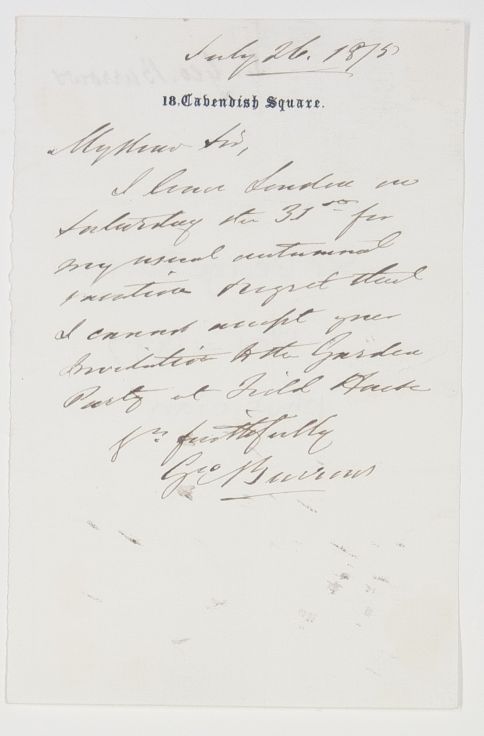 July 26. 1875
18, Cavendish Square.
My dear Sir,
I leave London on
Saturday the 31st for
my usual autumnal
vacation & regret that
I cannot accept your
Invitation to the Garden
Party at Field House
Yrs faithfully
Geo Burrows